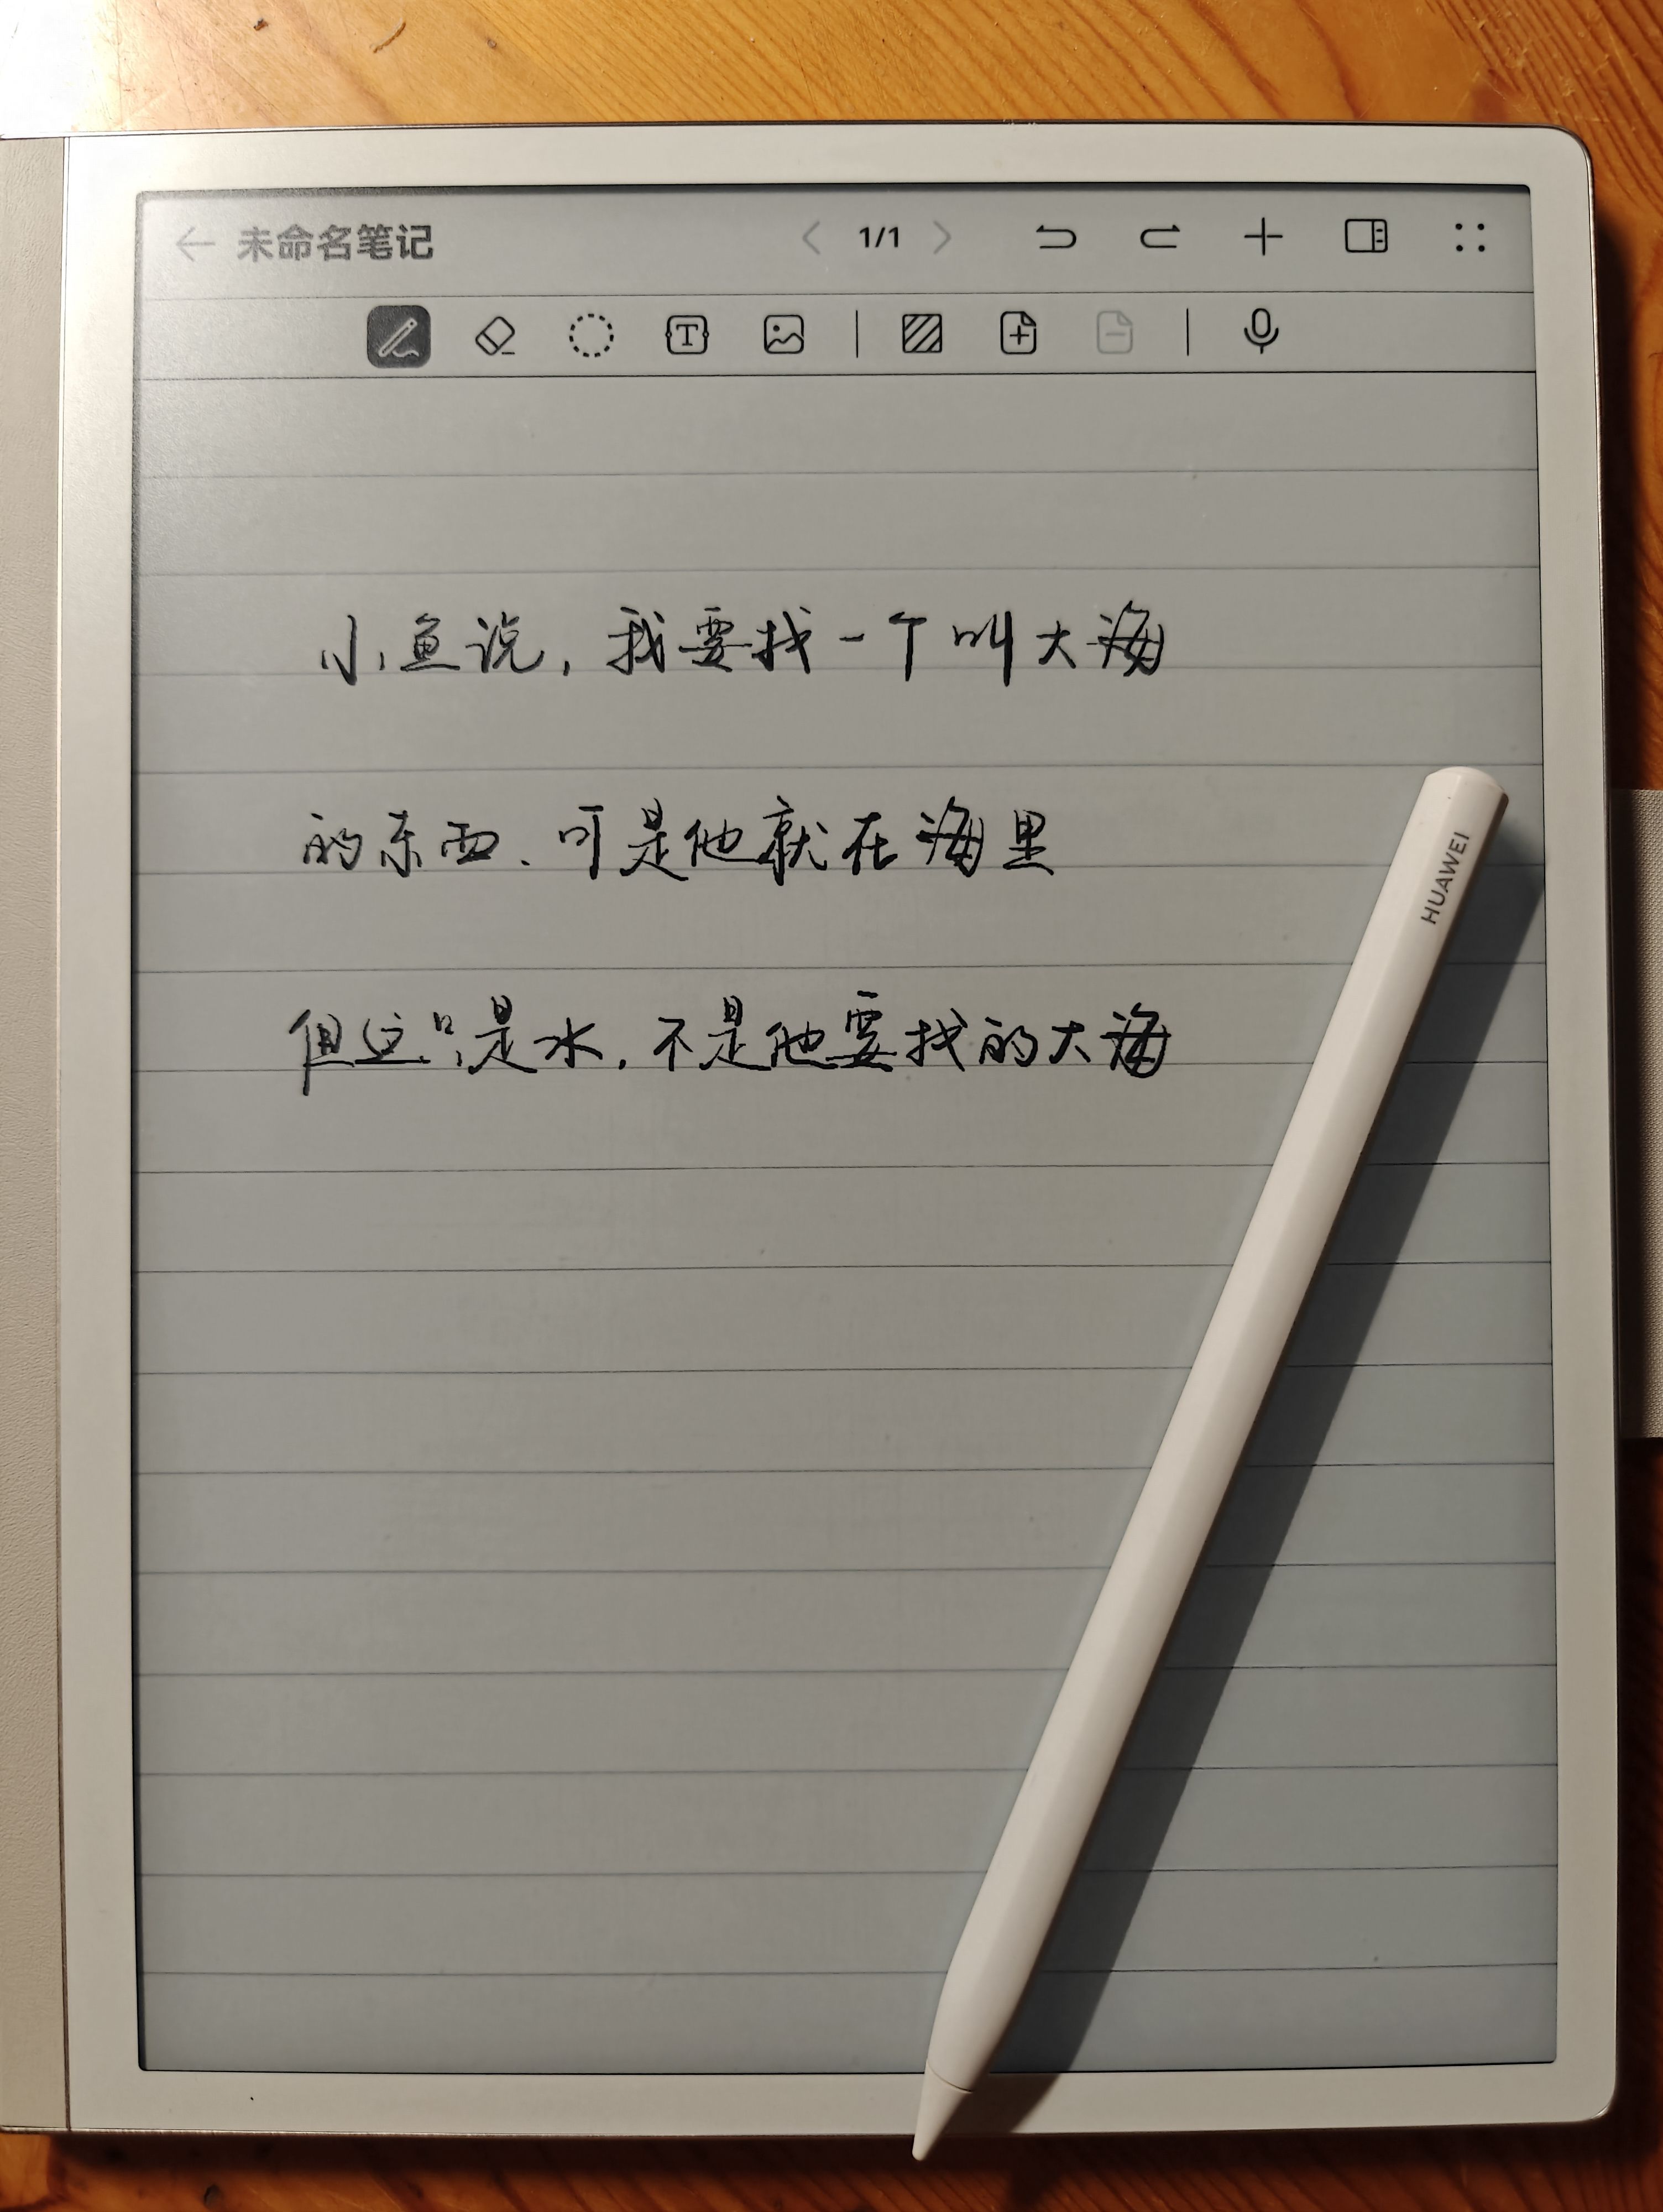 未命名笔记 1/1
小鱼说,我要找一个叫大海
的东西、可是他就在海里
但这只是水,不是他要找的大海
HUAWEI